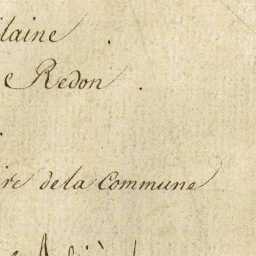 ilaine
e Redon.
ire de la Commune